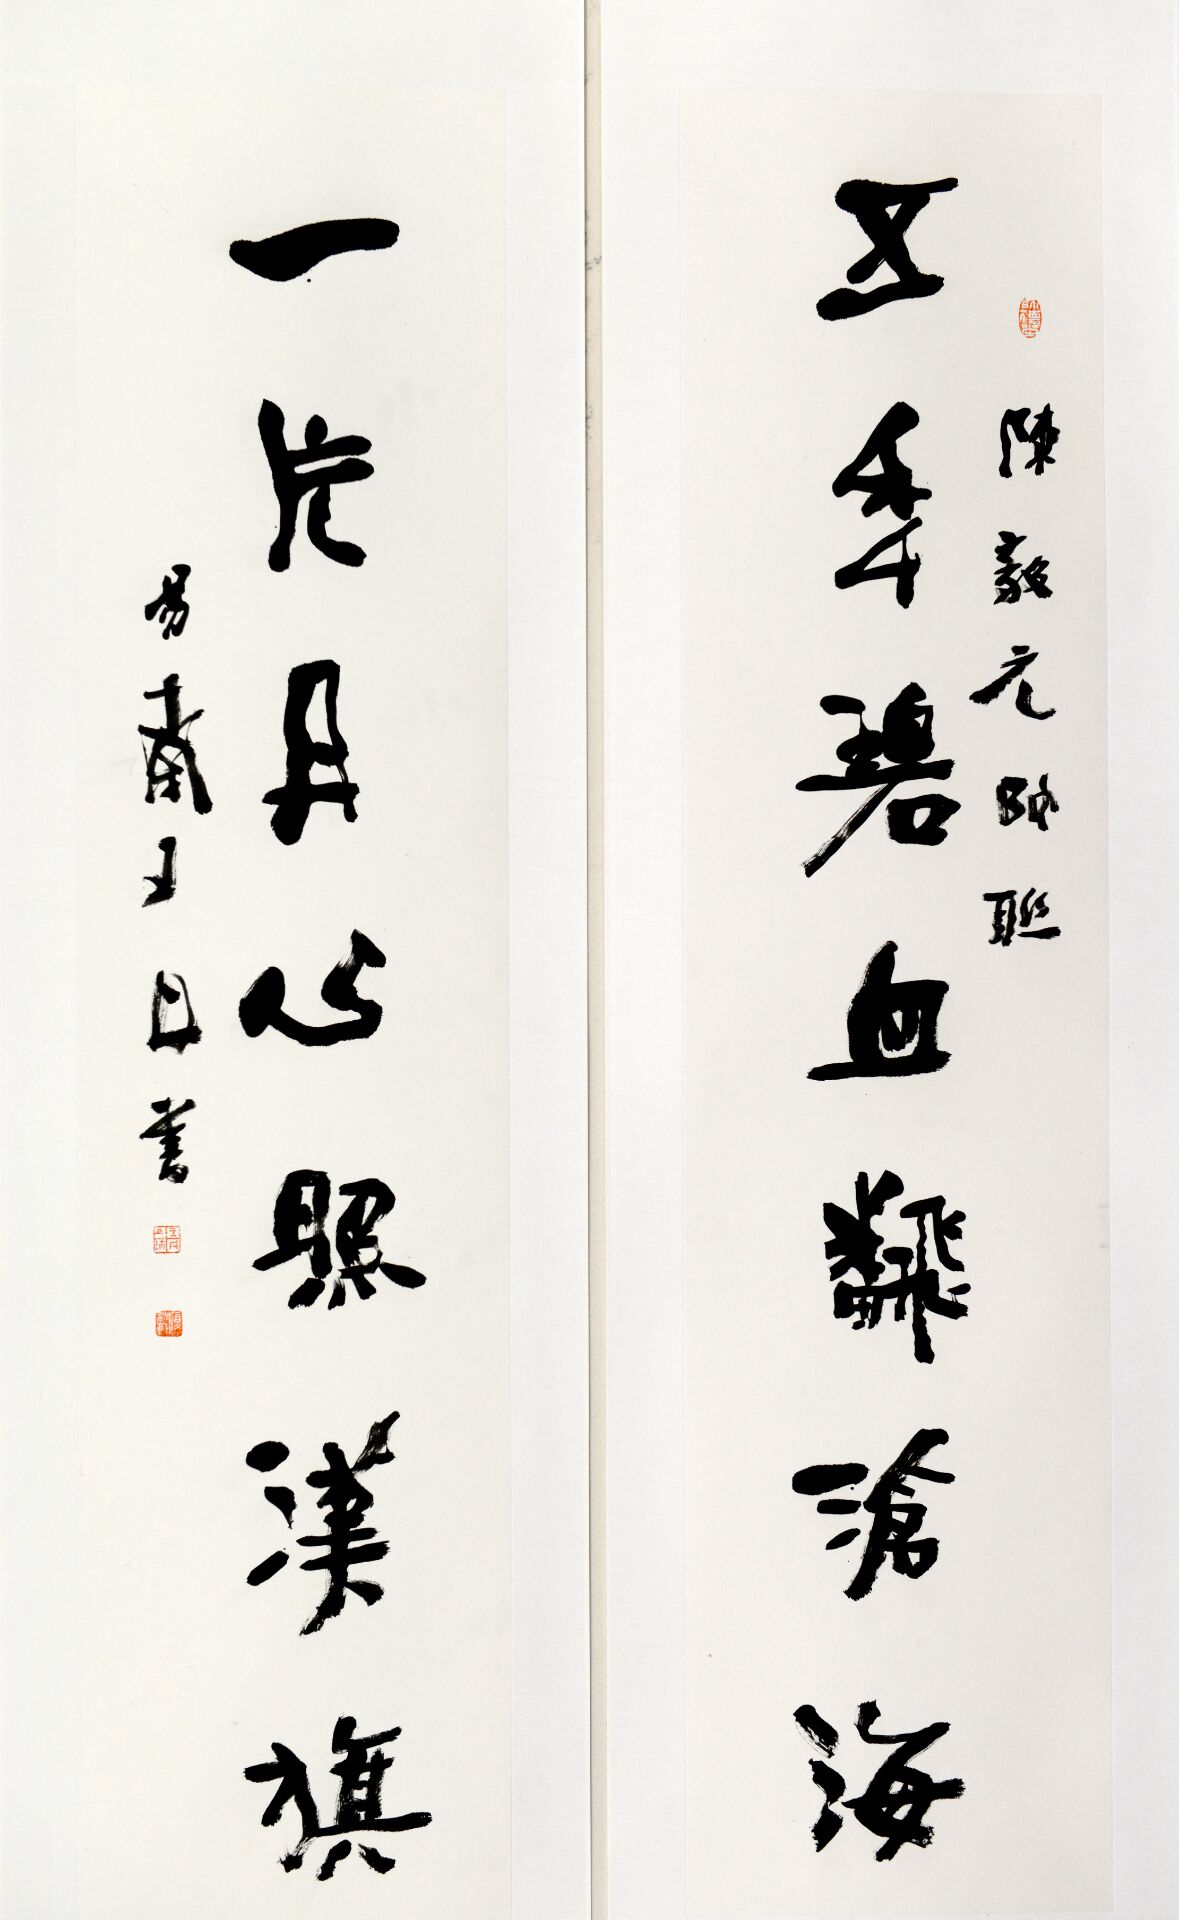 五秊碧血飜滄海
陳毅元帥聯
一片丹心照漢旗
易王日書